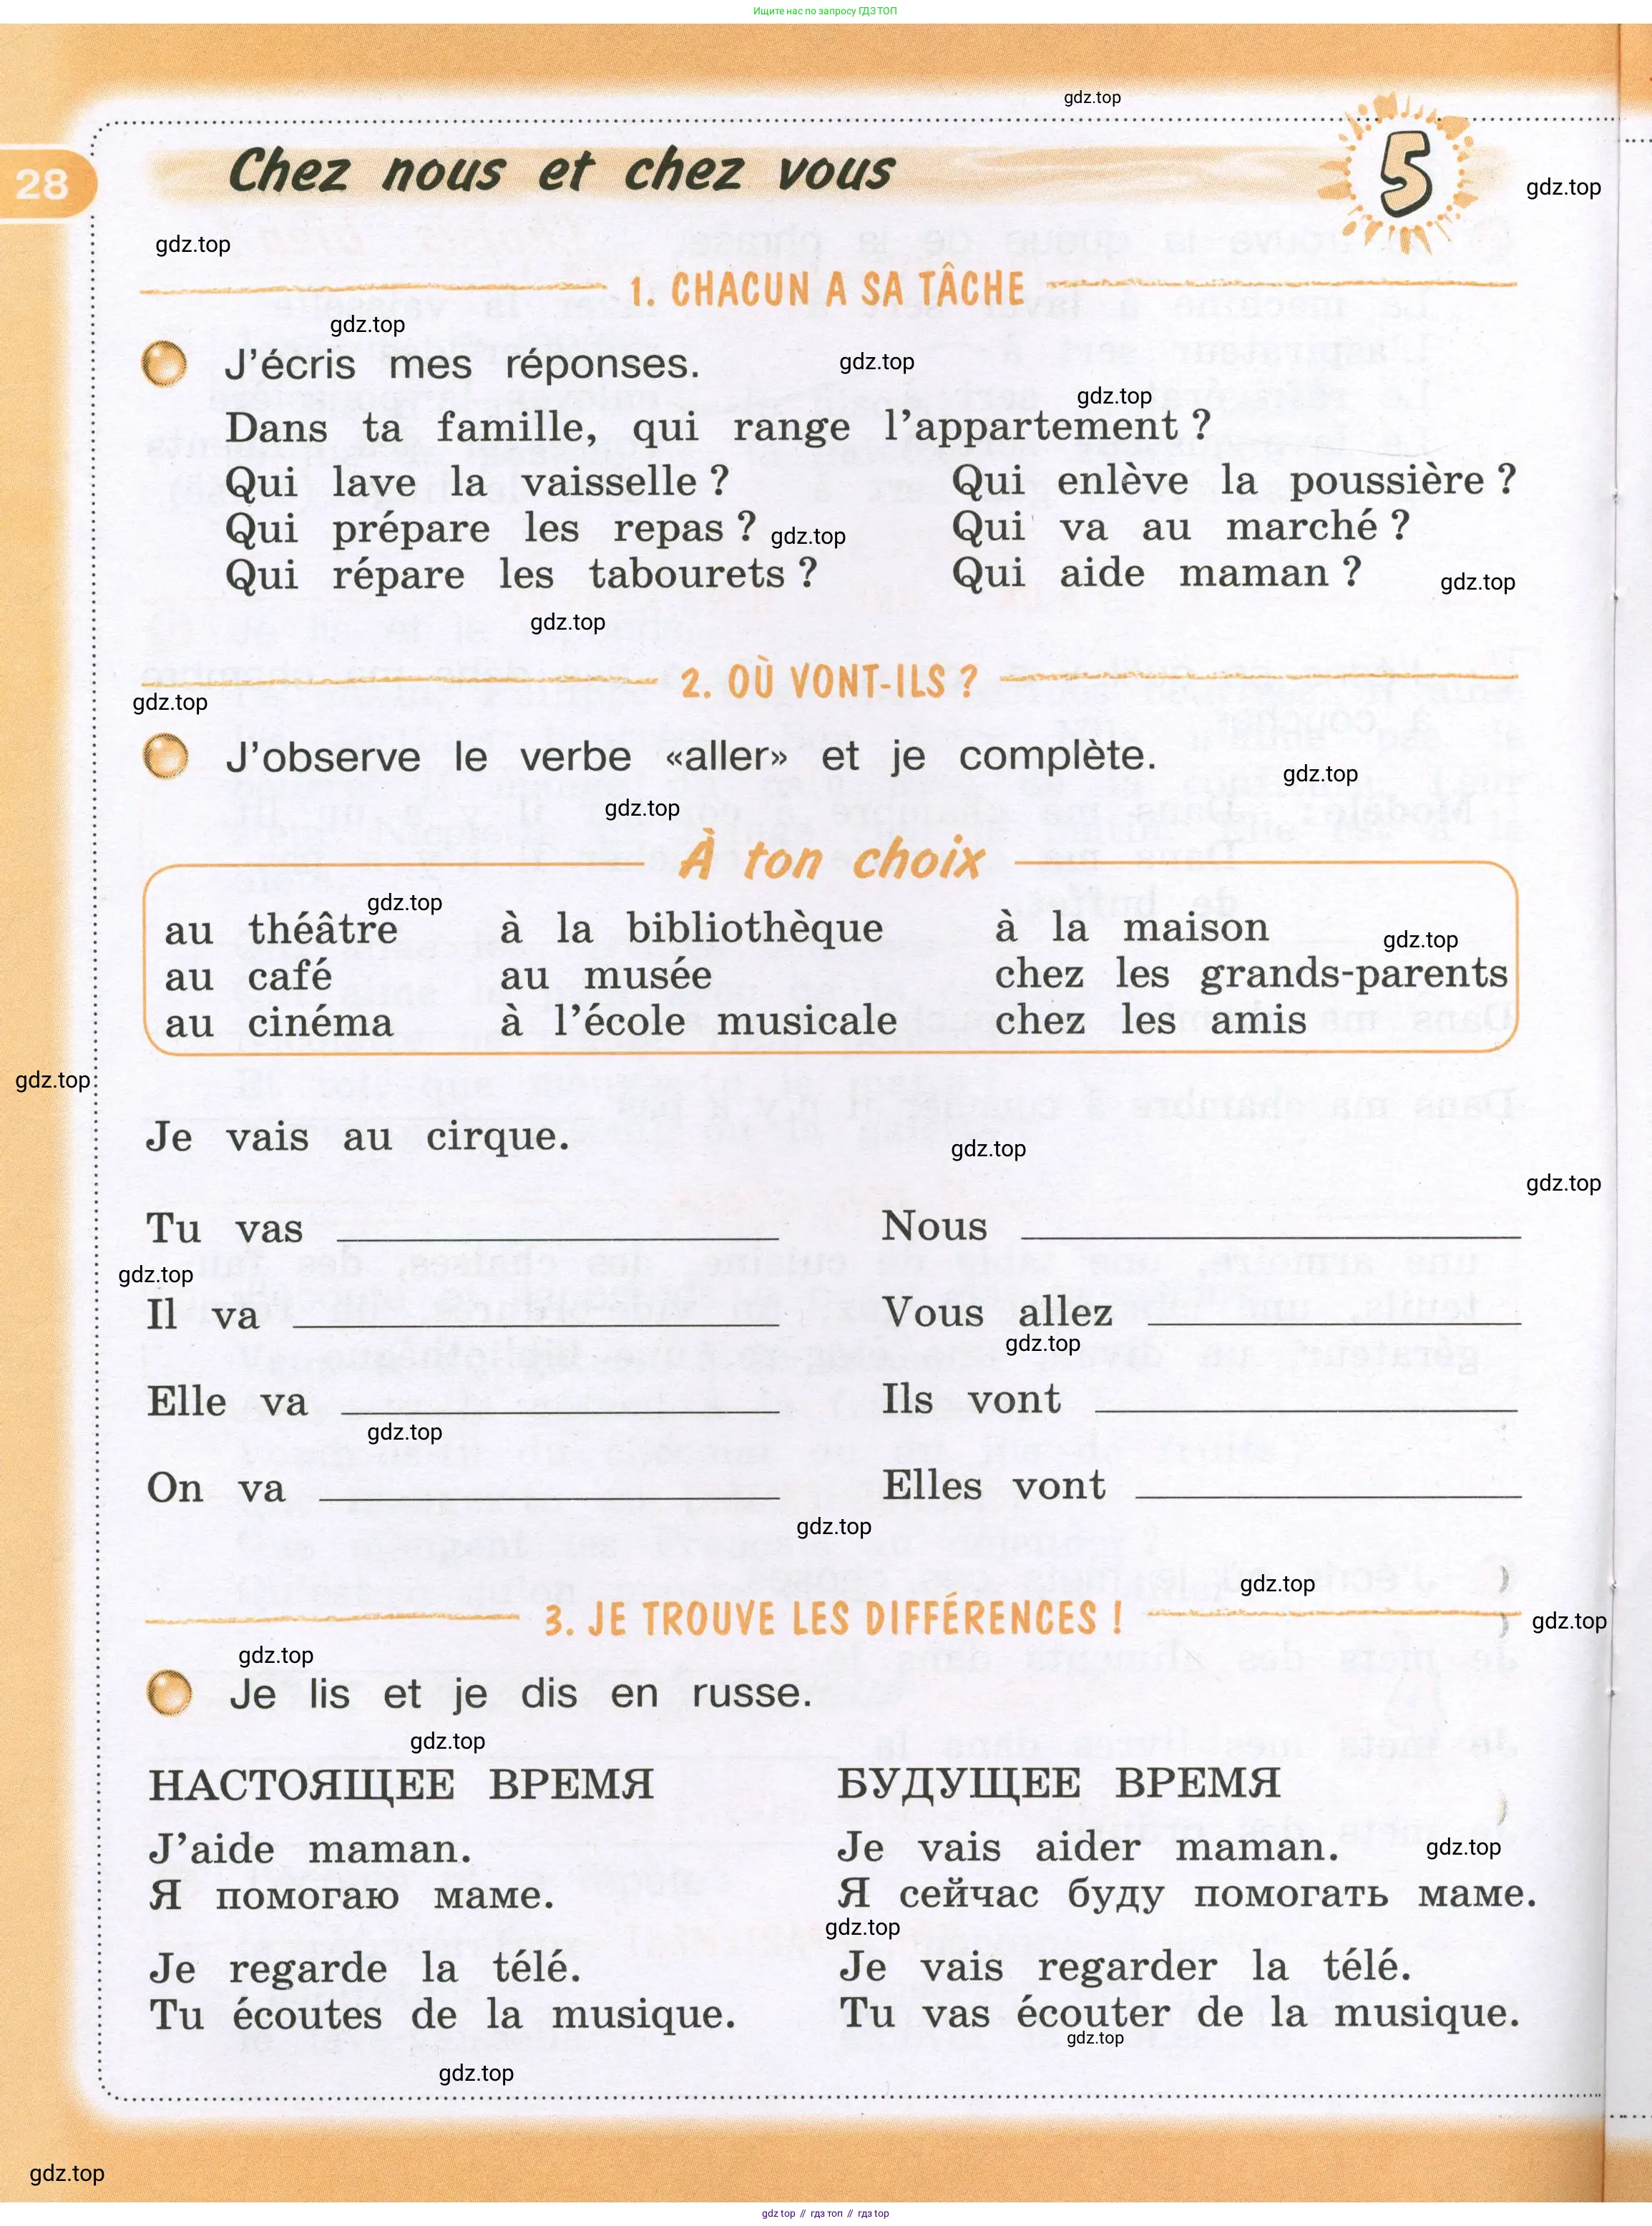 Ищите нас по запросу ГДЗ ТОП
gdz.top
28
Chez nous et chez vous
5
gdz.top
gdz.top
1. CHACUN A SA TÂCHE
gdz.top
J'écris mes réponses.
gdz.top
gdz.top
Dans ta famille, qui range l'appartement ?
Qui lave la vaisselle ? Qui enlève la poussière ?
Qui prépare les repas ? gdz.top Qui va au marché ?
Qui répare les tabourets ? Qui aide maman ? gdz.top
gdz.top
2. OÙ VONT-ILS ?
gdz.top
J'observe le verbe «aller» et je complète.
gdz.top
gdz.top
À ton choix
gdz.top
au théâtre à la bibliothèque à la maison
gdz.top
au café au musée chez les grands-parents
au cinéma à l'école musicale chez les amis
gdz.top
Je vais au cirque.
gdz.top
gdz.top
Tu vas Nous
gdz.top
Il va Vous allez
gdz.top
Elle va Ils vont
gdz.top
On va Elles vont
gdz.top
gdz.top
3. JE TROUVE LES DIFFÉRENCES !
gdz.top
gdz.top
Je lis et je dis en russe.
gdz.top
НАСТОЯЩЕЕ ВРЕМЯ БУДУЩЕЕ ВРЕМЯ
J'aide maman. Je vais aider maman. gdz.top
Я помогаю маме. Я сейчас буду помогать маме.
gdz.top
Je regarde la télé. Je vais regarder la télé.
Tu écoutes de la musique. Tu vas écouter de la musique.
gdz.top
gdz.top
gdz.top
gdz top // гдз топ // гдз top